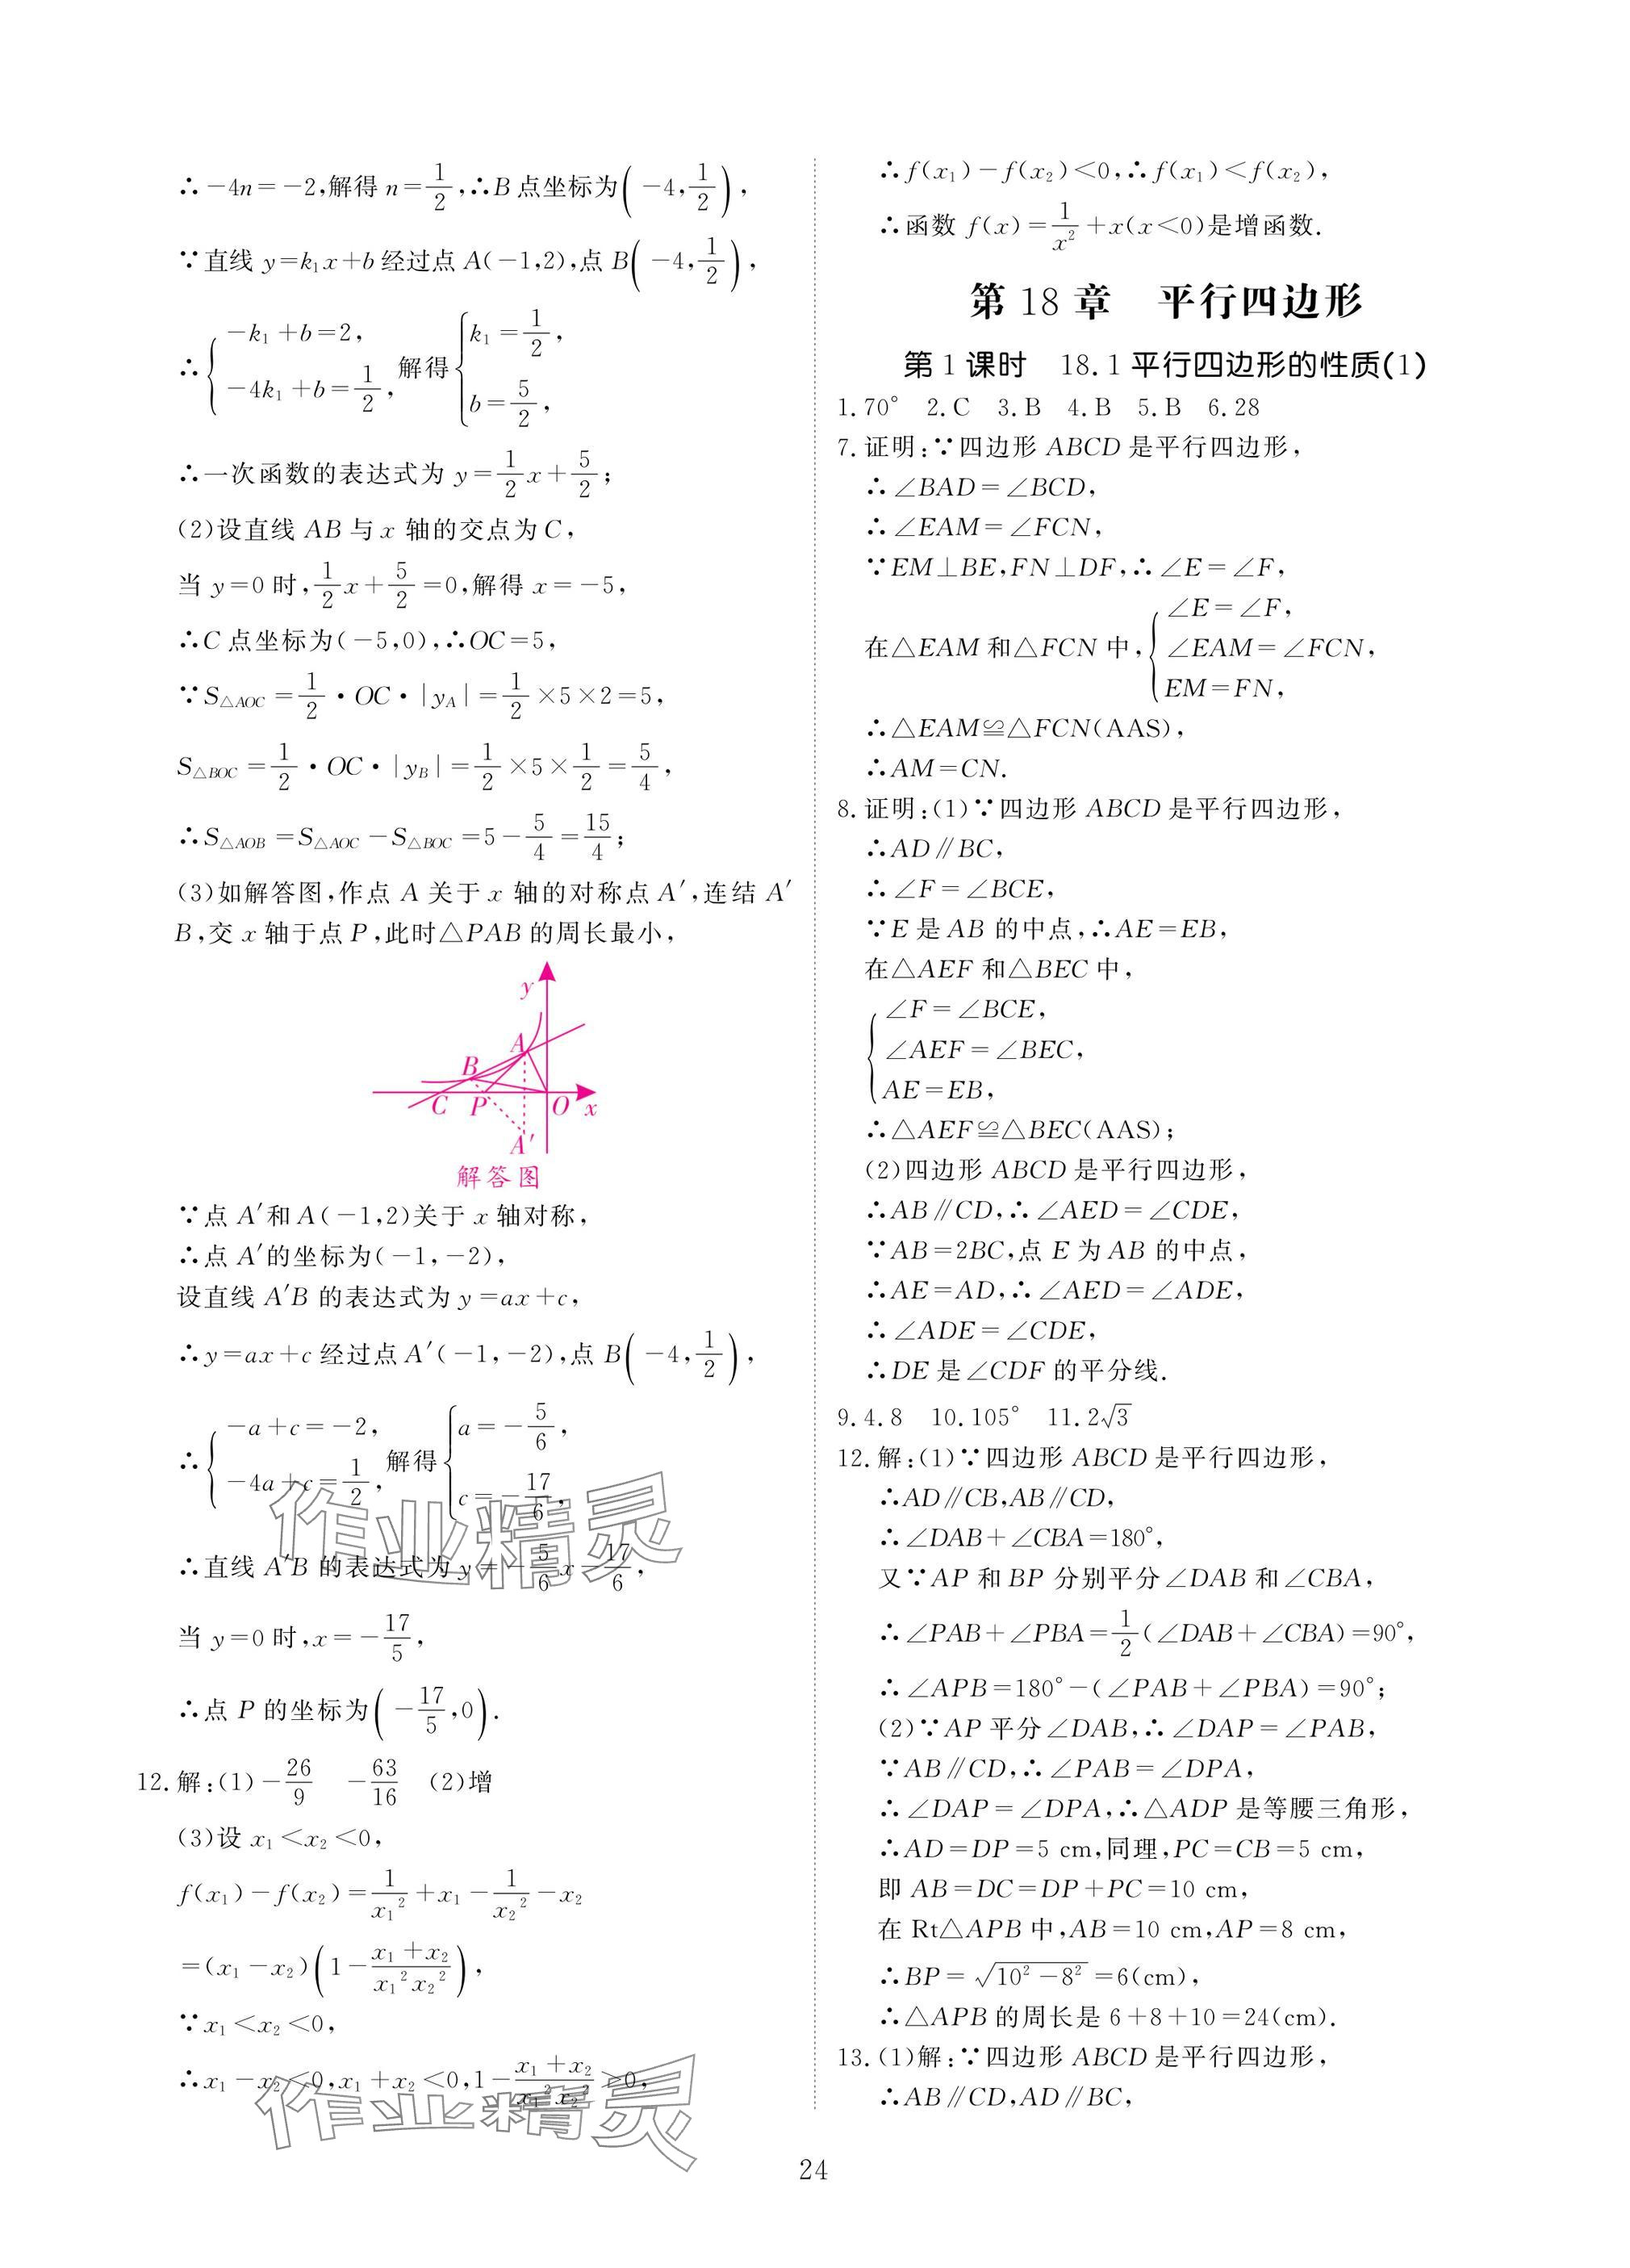 ∴－4n＝－2,解得 n＝1/2,∴B 点坐标为(－4,1/2),
∵直线 y＝k₁x＋b 经过点 A(－1,2),点 B(－4,1/2),
∴{－k₁＋b＝2, －4k₁＋b＝1/2, 解得{k₁＝1/2, b＝5/2,
∴一次函数的表达式为 y＝1/2x＋5/2;
(2)设直线 AB 与 x 轴的交点为C,
当 y＝0 时,1/2x＋5/2＝0,解得 x＝－5,
∴C 点坐标为(－5,0),∴OC＝5,
∵S△AOC＝1/2·OC·|yA|＝1/2×5×2＝5,
S△BOC＝1/2·OC·|yB|＝1/2×5×1/2＝5/4,
∴S△AOB＝S△AOC－S△BOC＝5－5/4＝15/4;
(3)如解答图,作点 A 关于 x 轴的对称点 A′,连结 A′
B,交 x 轴于点 P,此时△PAB 的周长最小,
y
A
B
C P O x
A′
解答图
∵点 A′和 A(－1,2)关于 x 轴对称,
∴点 A′的坐标为(－1,－2),
设直线 A′B 的表达式为 y＝ax＋c,
∴y＝ax＋c 经过点 A′(－1,－2),点 B(－4,1/2),
∴{－a＋c＝－2, －4a＋c＝1/2, 解得{a＝－5/6, c＝－17/6,
∴直线 A′B 的表达式为 y＝－5/6x－17/6,
当 y＝0 时,x＝－17/5,
∴点 P 的坐标为(－17/5,0).
12.解:(1)－26/9 －63/16 (2)增
(3)设 x₁＜x₂＜0,
f(x₁)－f(x₂)＝1/x₁²＋x₁－1/x₂²－x₂
＝(x₁－x₂)(1－(x₁＋x₂)/(x₁²x₂²)),
∵x₁＜x₂＜0,
∴x₁－x₂＜0,x₁＋x₂＜0,1－(x₁＋x₂)/(x₁²x₂²)＞0,
∴f(x₁)－f(x₂)＜0,∴f(x₁)＜f(x₂),
∴函数 f(x)＝1/x²＋x(x＜0)是增函数.
第 18 章 平行四边形
第 1 课时 18.1 平行四边形的性质(1)
1.70° 2.C 3.B 4.B 5.B 6.28
7.证明:∵四边形 ABCD 是平行四边形,
∴∠BAD＝∠BCD,
∴∠EAM＝∠FCN,
∵EM⊥BE,FN⊥DF,∴∠E＝∠F,
在△EAM 和△FCN 中,{∠E＝∠F, ∠EAM＝∠FCN, EM＝FN,
∴△EAM≌△FCN(AAS),
∴AM＝CN.
8.证明:(1)∵四边形 ABCD 是平行四边形,
∴AD∥BC,
∴∠F＝∠BCE,
∵E 是 AB 的中点,∴AE＝EB,
在△AEF 和△BEC 中,
{∠F＝∠BCE,
∠AEF＝∠BEC,
AE＝EB,
∴△AEF≌△BEC(AAS);
(2)四边形 ABCD 是平行四边形,
∴AB∥CD,∴∠AED＝∠CDE,
∵AB＝2BC,点 E 为 AB 的中点,
∴AE＝AD,∴∠AED＝∠ADE,
∴∠ADE＝∠CDE,
∴DE 是∠CDF 的平分线.
9.4.8 10.105° 11.2√3
12.解:(1)∵四边形 ABCD 是平行四边形,
∴AD∥CB,AB∥CD,
∴∠DAB＋∠CBA＝180°,
又∵AP 和 BP 分别平分∠DAB 和∠CBA,
∴∠PAB＋∠PBA＝1/2(∠DAB＋∠CBA)＝90°,
∴∠APB＝180°－(∠PAB＋∠PBA)＝90°;
(2)∵AP 平分∠DAB,∴∠DAP＝∠PAB,
∵AB∥CD,∴∠PAB＝∠DPA,
∴∠DAP＝∠DPA,∴△ADP 是等腰三角形,
∴AD＝DP＝5 cm,同理,PC＝CB＝5 cm,
即 AB＝DC＝DP＋PC＝10 cm,
在 Rt△APB 中,AB＝10 cm,AP＝8 cm,
∴BP＝√(10²－8²)＝6(cm),
∴△APB 的周长是 6＋8＋10＝24(cm).
13.(1)解:∵四边形 ABCD 是平行四边形,
∴AB∥CD,AD∥BC,
作业精灵
作业精灵
24